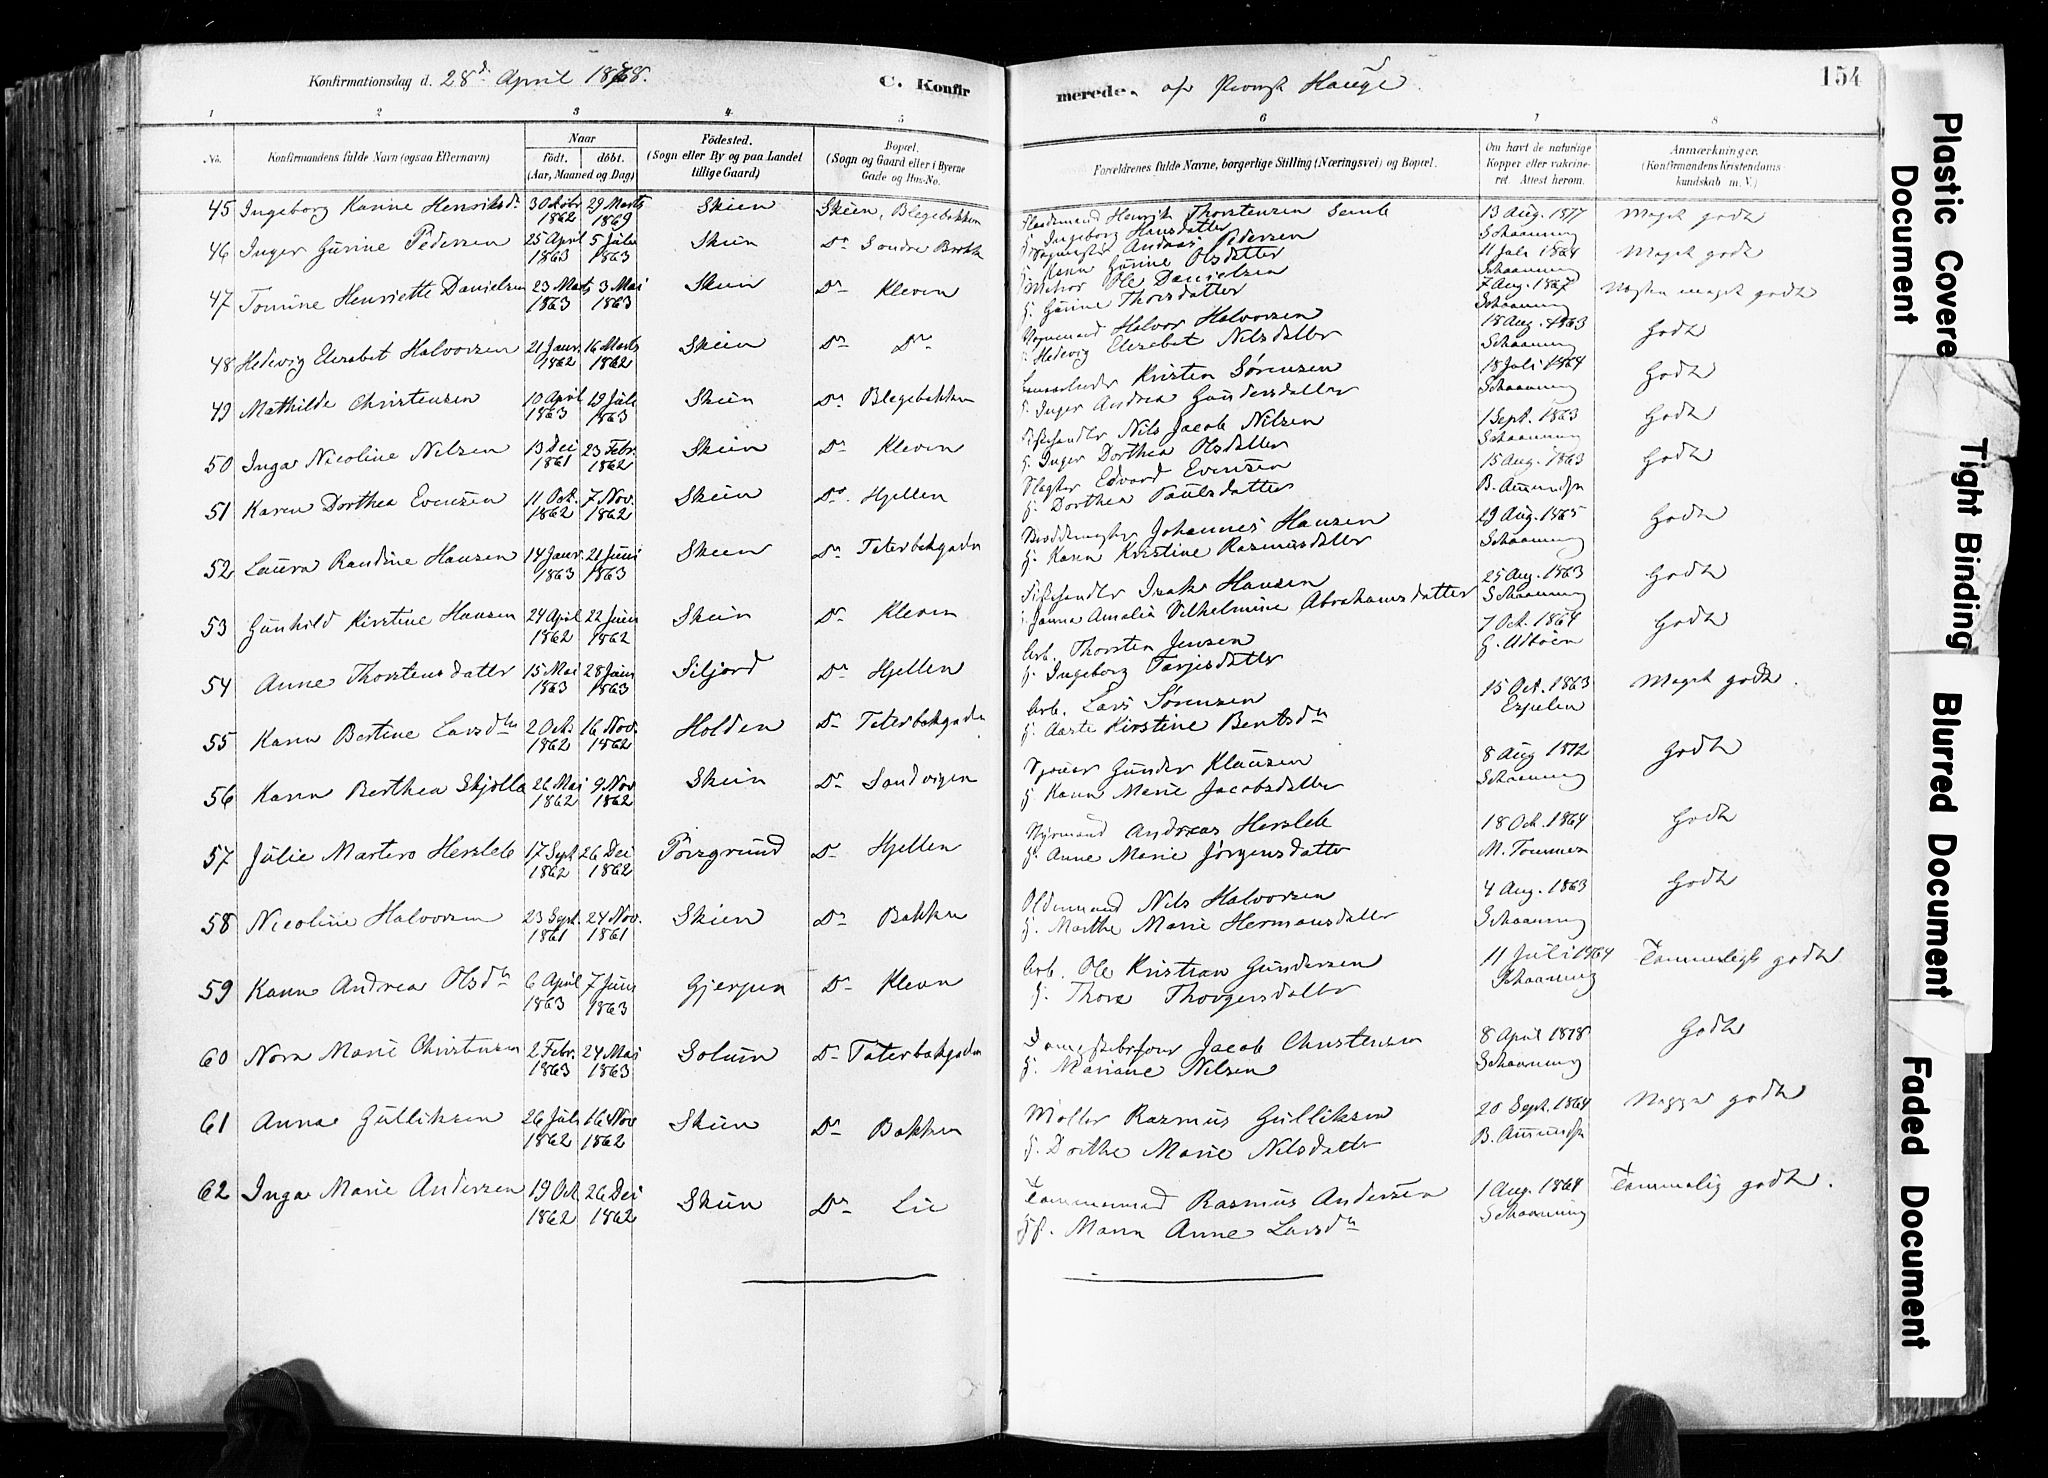 Konfirmationsdag d. 28d April 1878. C. Konfirmerede. af Provst Hauge. 154
1 2 3 4 5 6 7 8
No. Konfirmandens fulde Navn (ogsaa Efternavn) Naar födt. döbt. (Aar, Maaned og Dag) Födested. (Sogn eller By og paa Landet tillige Gaard) Bopæl. (Sogn og Gaard eller i Byerne Gade og Hus-No. Forældrenes fulde Navne, borgerlige Stilling (Næringsvei) og Bopæl. Om havt de naturlige Kopper eller vakcineret. Attest herom. Anmærkninger, (Konfirmandens Kristendomskundskab m. V.)
45 Ingeborg Karine Henriksd. 3 Oktbr 1862 29 Marts 1869 Skien Skien, Blegebakken Henrik Thorstensen
Ingeborg Hansdatter 13 Aug. 1877 Schaanning Meget godt
46 Inger Gurine Pedersen 25 April 1863 5 Juli 1863 Skien Do Søndre Andreas Pedersen
G. Karen Gurine Olsdatter 11 Juli 1864 Schaanning Meget godt
47 Tomine Henriette Danielsen 23 Marts 1863 3 Mai 1863 Skien Do Kleven Ole Danielsen
G. Gurine Thorsdatter 7 Aug. 1867 Schaanning Næsten meget godt
48 Hedevig Elisabet Halvorsen 21 Janr. 1862 16 Marts 1862 Skien Do Do Vognmand Halvor Halvorsen
Hedevig Elisabet Nilsdatter 18 Aug. 1863 Schaanning Godt
49 Mathilde Christensen 10 April 1863 19 Juli 1863 Skien Do Blegebakken Kristen Sørensen
G. Inger Andrea Gundersdatter 18 Juli 1864 Schaanning Godt
50 Inga Nicoline Nilsen 13 Dei 1861 23 Febr. 1862 Skien Do Kleven Fiskehandler Nils Jacob Nilsen
G. Inger Dorthea Olsdatter 1 Sept. 1863 Schaanning Godt
51 Karen Dorthea Evensen 11 Oct. 1862 7 Nov. 1862 Skien Do. Hjellen Slagter Edvard Evensen
G. Dorthea Paulsdatter 15 Aug. 1863 B. Amundsn Godt
52 Laura Randine Hansen 14 Janr. 1863 21 Juni 1863 Skien Do Taterbekgaden Johannes Hansen
G. Karen Kristine Rasmusdatter 29 Aug. 1865 Schaanning Godt
53 Gunhild Kirstine Hansen 24 April 1862 22 Juni 1862 Skien Do Kleven Fiskehandler Isak Hansen
Janna Amalia Vilhelmine Abrahamsdatter 25 Aug. 1863 Schaanning Godt
54 Anne Thorstensdatter 15 Mai 1863 28 Juni 1863 Siljord Do Hjellen Arb. Thorsten Jensen
G. Ingeborg Tarjesdatter 7 Oct. 1864 Godt
55 Karen Bertine Larsdtr 2 Oct. 1862 16 Nov. 1862 Holden Do Taterbekgaden Arb. Lars Sørensen
G. Aaste Kirstine Bentsdtr 15 Oct. 1863 Espelen Meget godt.
56 Karen Berthea Skjolla 26 Mai 1862 9 Nov 1862 Skien Do Sandvigen Gunder Klausen
G Karen Marie Jacobsdatter 8 Aug 1872 Schaanning Godt
57 Julie Hersleb 17 Sept 1862 26 Dei 1862 Porsgrund Do Hjellen Styrmand Andreas Hersleb
G. Anne Marie Jørgensdatter 18 Oct. 1864 Godt
58 Nicoline Halvorsen 23 Sept. 1861 24 Nov. 1861 Skien Do Bakken Oldermand Nils Halvorsen
G. Marthe Marie Hermansdatter 4 Aug. 1863 Schaanning Godt
59 Karen Andrea Olsdtr 6 April 1863 7 Juni 1863 Gjerpen Do Kleven Arb. Ole Kristian Gundersen
G. Thora Thorgersdatter 11 Juli 1864 Schaanning Temmeligt godt
60 Nora Marie Christensen 2 Febr. 1863 24 Mai 1863 Solum Do Taterbekgaden Dampskibsfører Jacob Christensen
G. Mariane Nilsen 8 April 1878 Schaanning Godt
61 Anna Gulliksen 26 Juli 1862 16 Nov 1862 Skien Do Bakken Møller Rasmus Gulliksen
G. Dorthe Marie Nilsdatter 20 Sept. 1864 B. Amundsn godt
62 Inga Marie Andersen 19 Oct. 1862 26 Dei 1862 Skien Do Lie Tømmermand Rasmus Andersen
Maren Anne Larsdtr 1 Aug. 1864 Schaanning Temmelig godt.
Plastic Covere Document
Tight Binding
Blurred Document
Faded Document